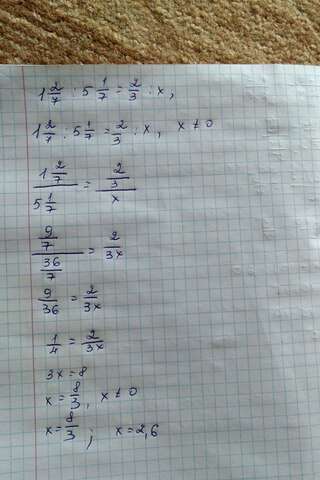 1 2/7 : 5 1/7 = 2/3 : x,
1 2/7 : 5 1/7 = 2/3 : x, x ≠ 0
(1 2/7)/(5 1/7) = (2/3)/x
(9/7)/(36/7) = 2/3x
9/36 = 2/3x
1/4 = 2/3x
3x = 8
x = 8/3, x ≠ 0
x = 8/3; x = 2,6